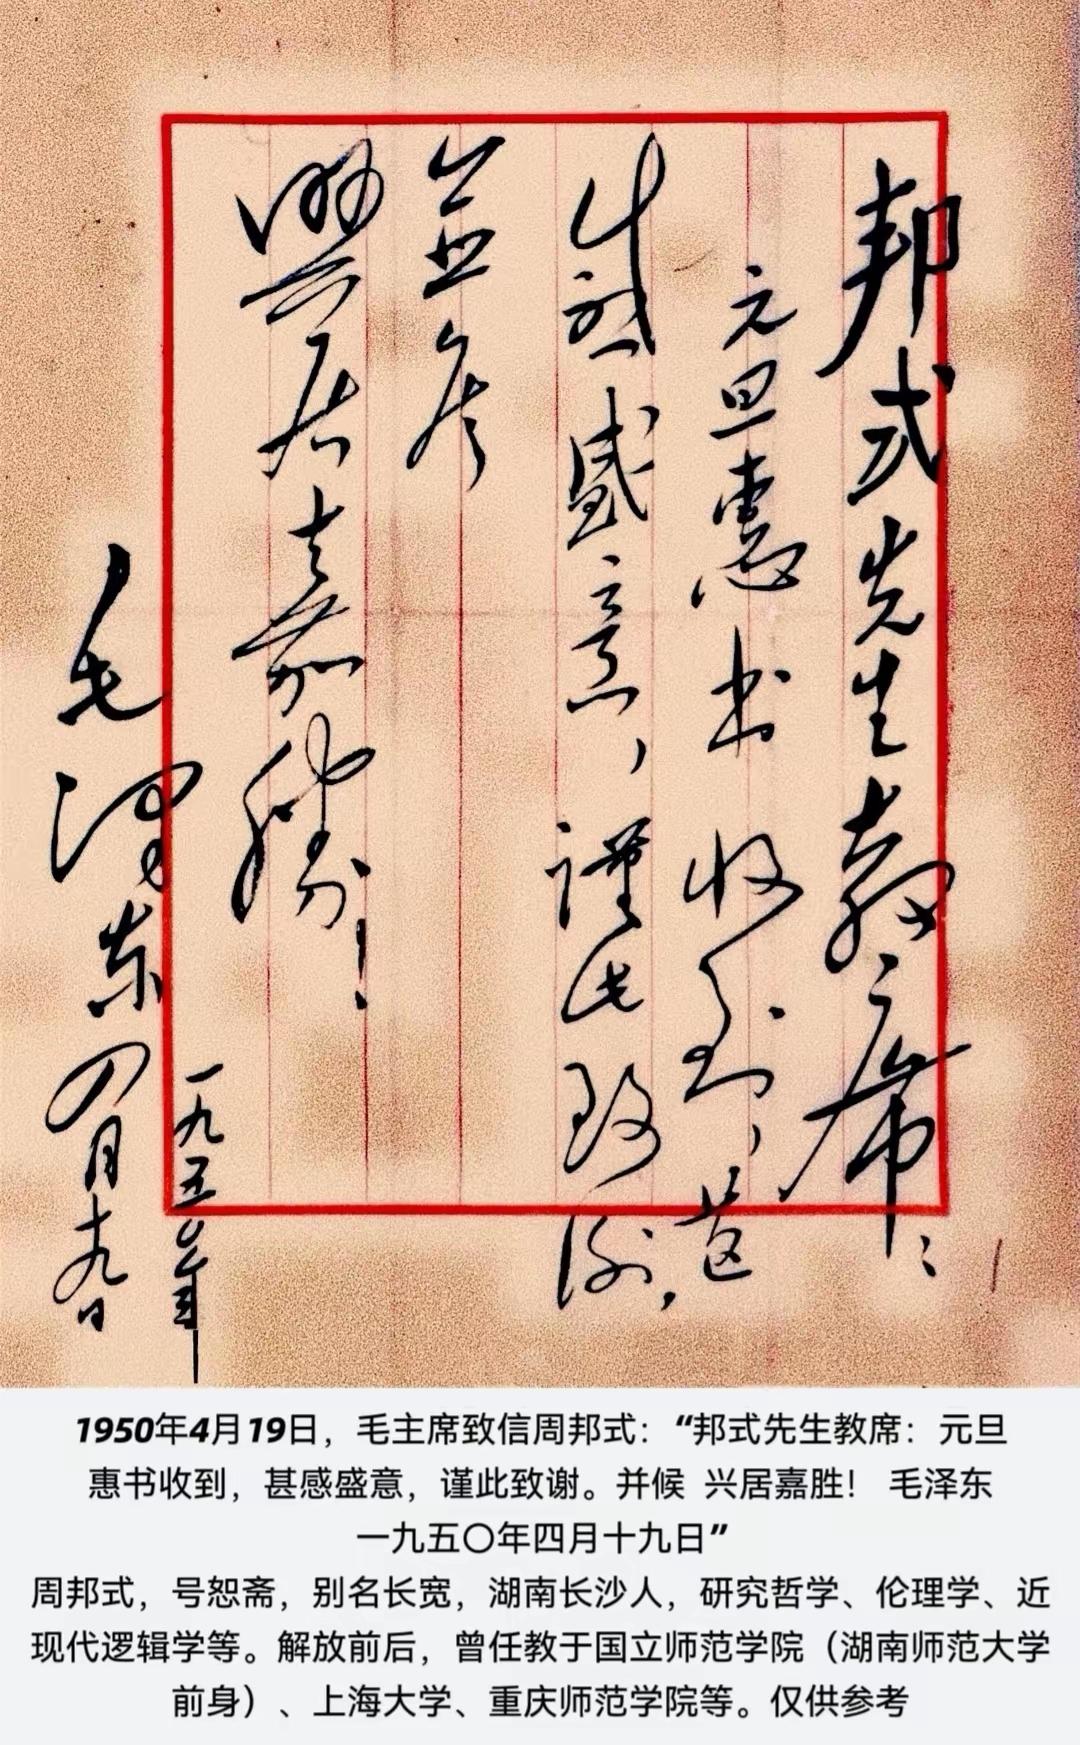 邦式先生教席：
元旦惠书收到，甚
感盛意，謹此致谢，
並候
興居嘉勝！
一九五〇年
毛泽东 四月十九日
1950年4月19日，毛主席致信周邦式：“邦式先生教席：元旦
惠书收到，甚感盛意，谨此致谢。并候 兴居嘉胜！ 毛泽东
一九五〇年四月十九日”
周邦式，号恕斋，别名长宽，湖南长沙人，研究哲学、伦理学、近
现代逻辑学等。解放前后，曾任教于国立师范学院（湖南师范大学
前身）、上海大学、重庆师范学院等。仅供参考